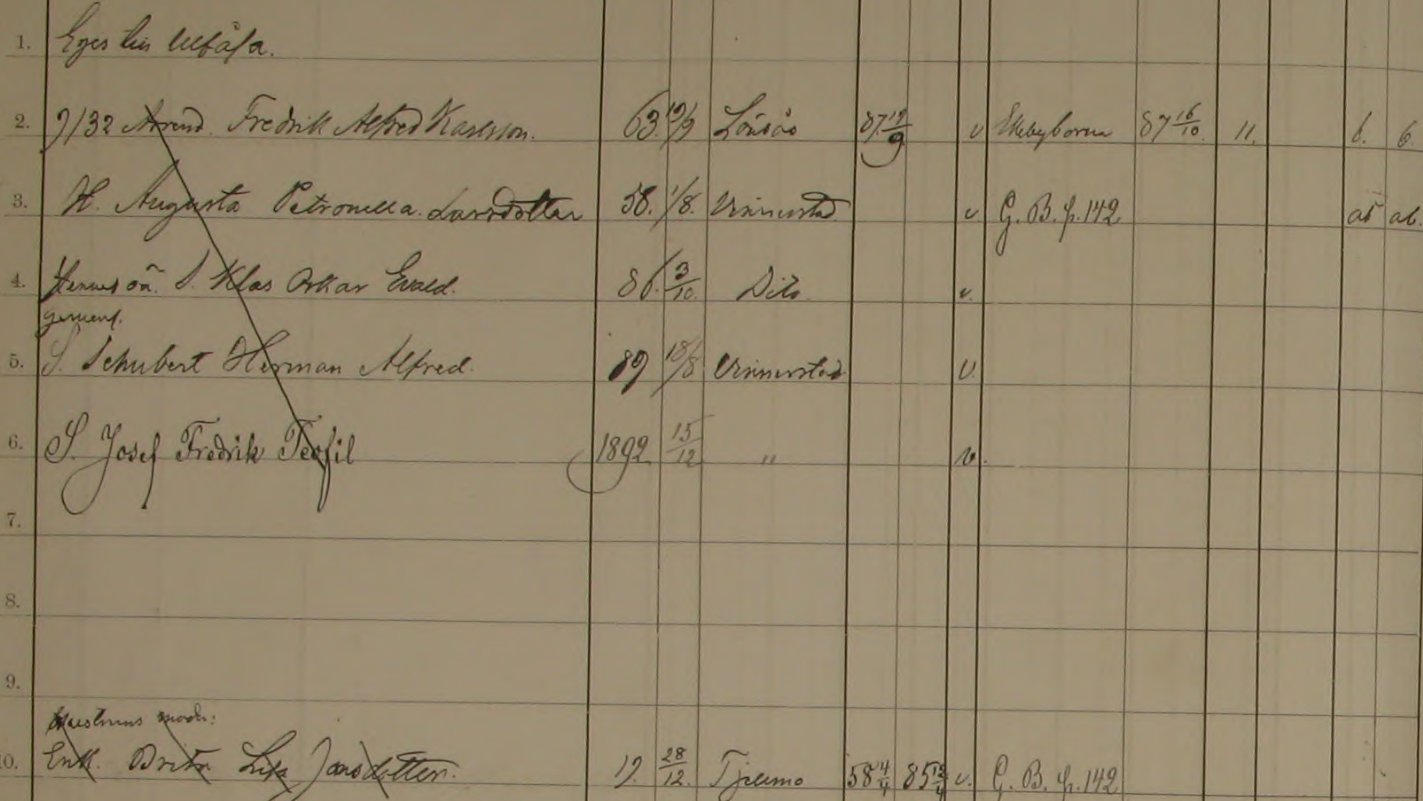 1. Eges
2. 9/32 Arrend. Fredrik Alfred Karlsson. 63 19/9 Lönsås 87 19/9 v Ekebyborna 87 16/10 11. b. b.
3. H. Augusta Petronella Larsdotter 58. 1/8. Vinnerstad v G. B. p. 142 ab ab.
4. Hennes oä. S. Klas Oskar Evald. 86. 3/10. Dito v.
5. S. Schubert Herman Alfred. 89 18/8 Vinnerstad v.
6. S. Josef Fredrik Teofil 1892 15/12 " v.
7.
8.
9.
moder:
10. Enk. Brita Lisa Jonsdotter. 19. 28/12. Tjellmo 58 4/4 85 v. G. B. p. 142